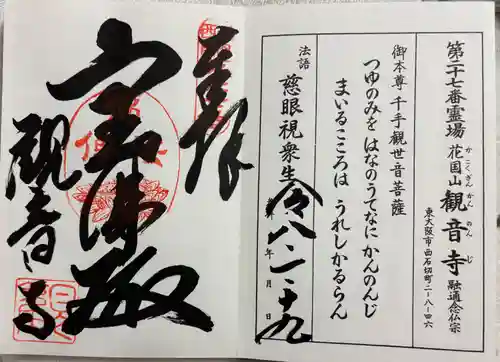 第三十七番霊場
花国山 観音寺 融通念仏宗
かこくざん かんのんじ
東大阪市西石切町二-八-四六
御本尊 千手観世音菩薩
つゆのみを はなのうてなに かんのんじ
まいるこころは うれしかるらん
法語 慈眼視衆生
令八年一月二十九日
奉拝
観音寺